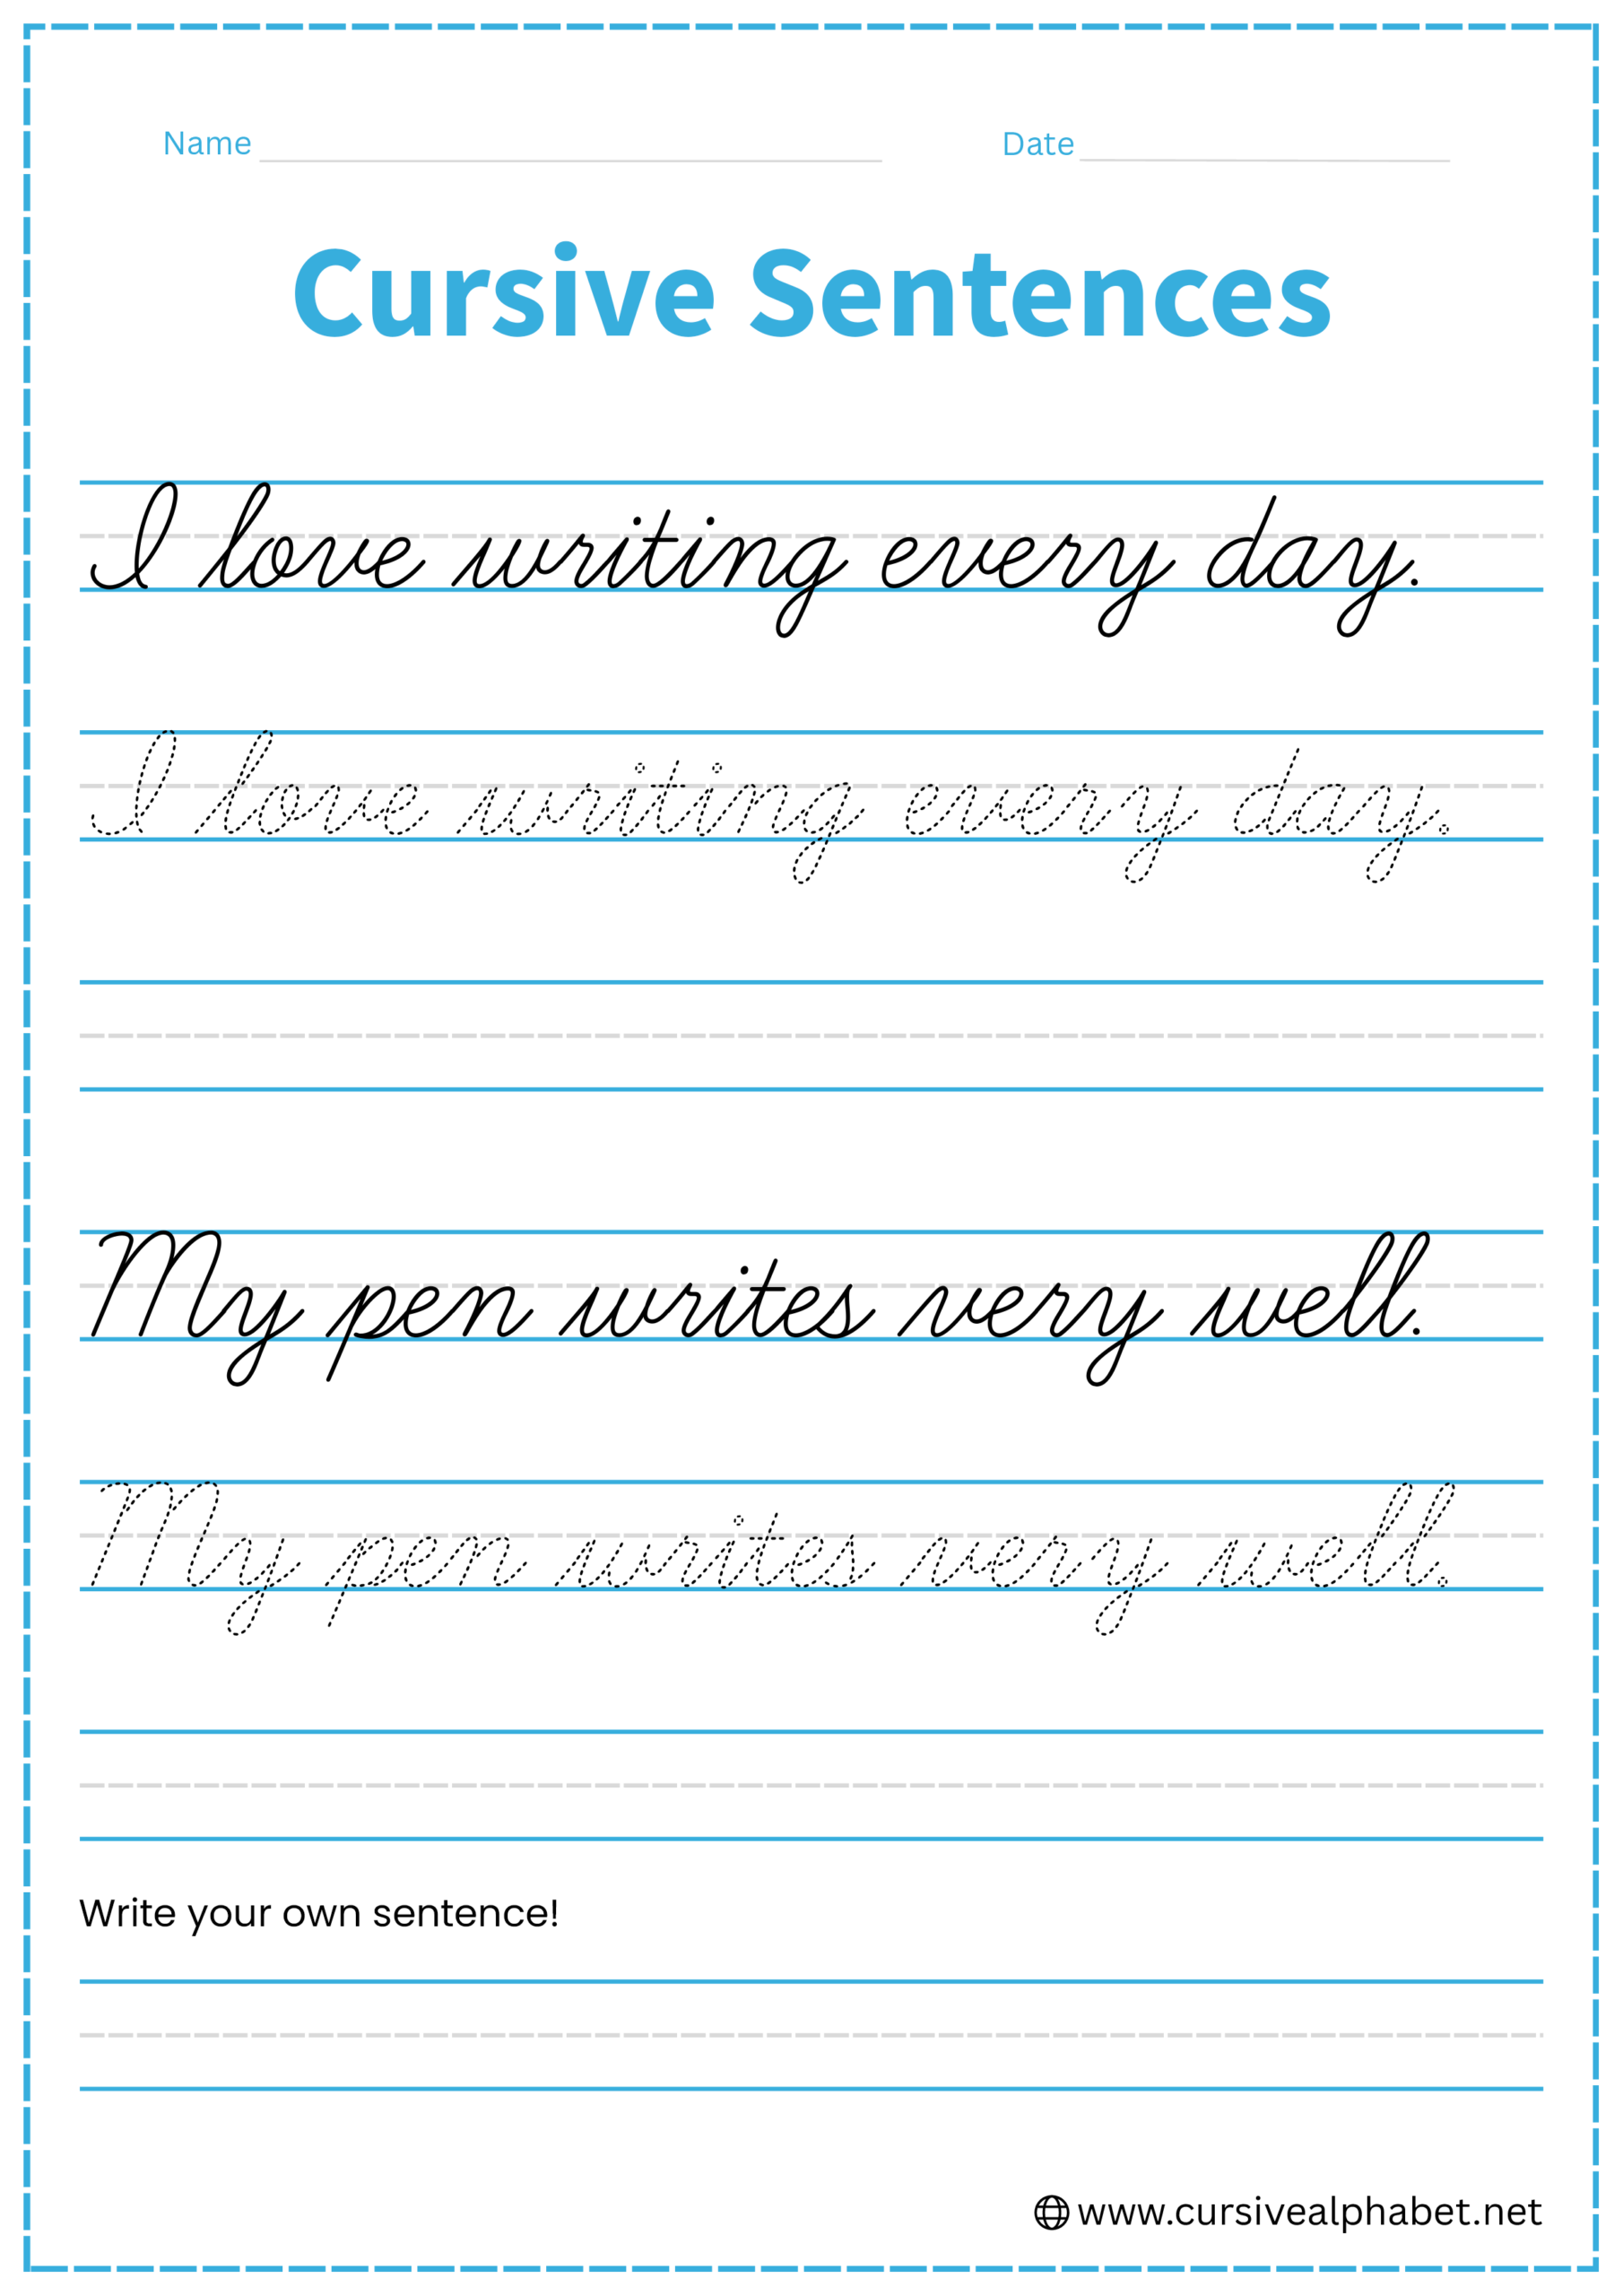 Name Date
Cursive Sentences
I love writing every day.
I love writing every day.
My pen writes very well.
My pen writes very well.
Write your own sentence!
www.cursivealphabet.net